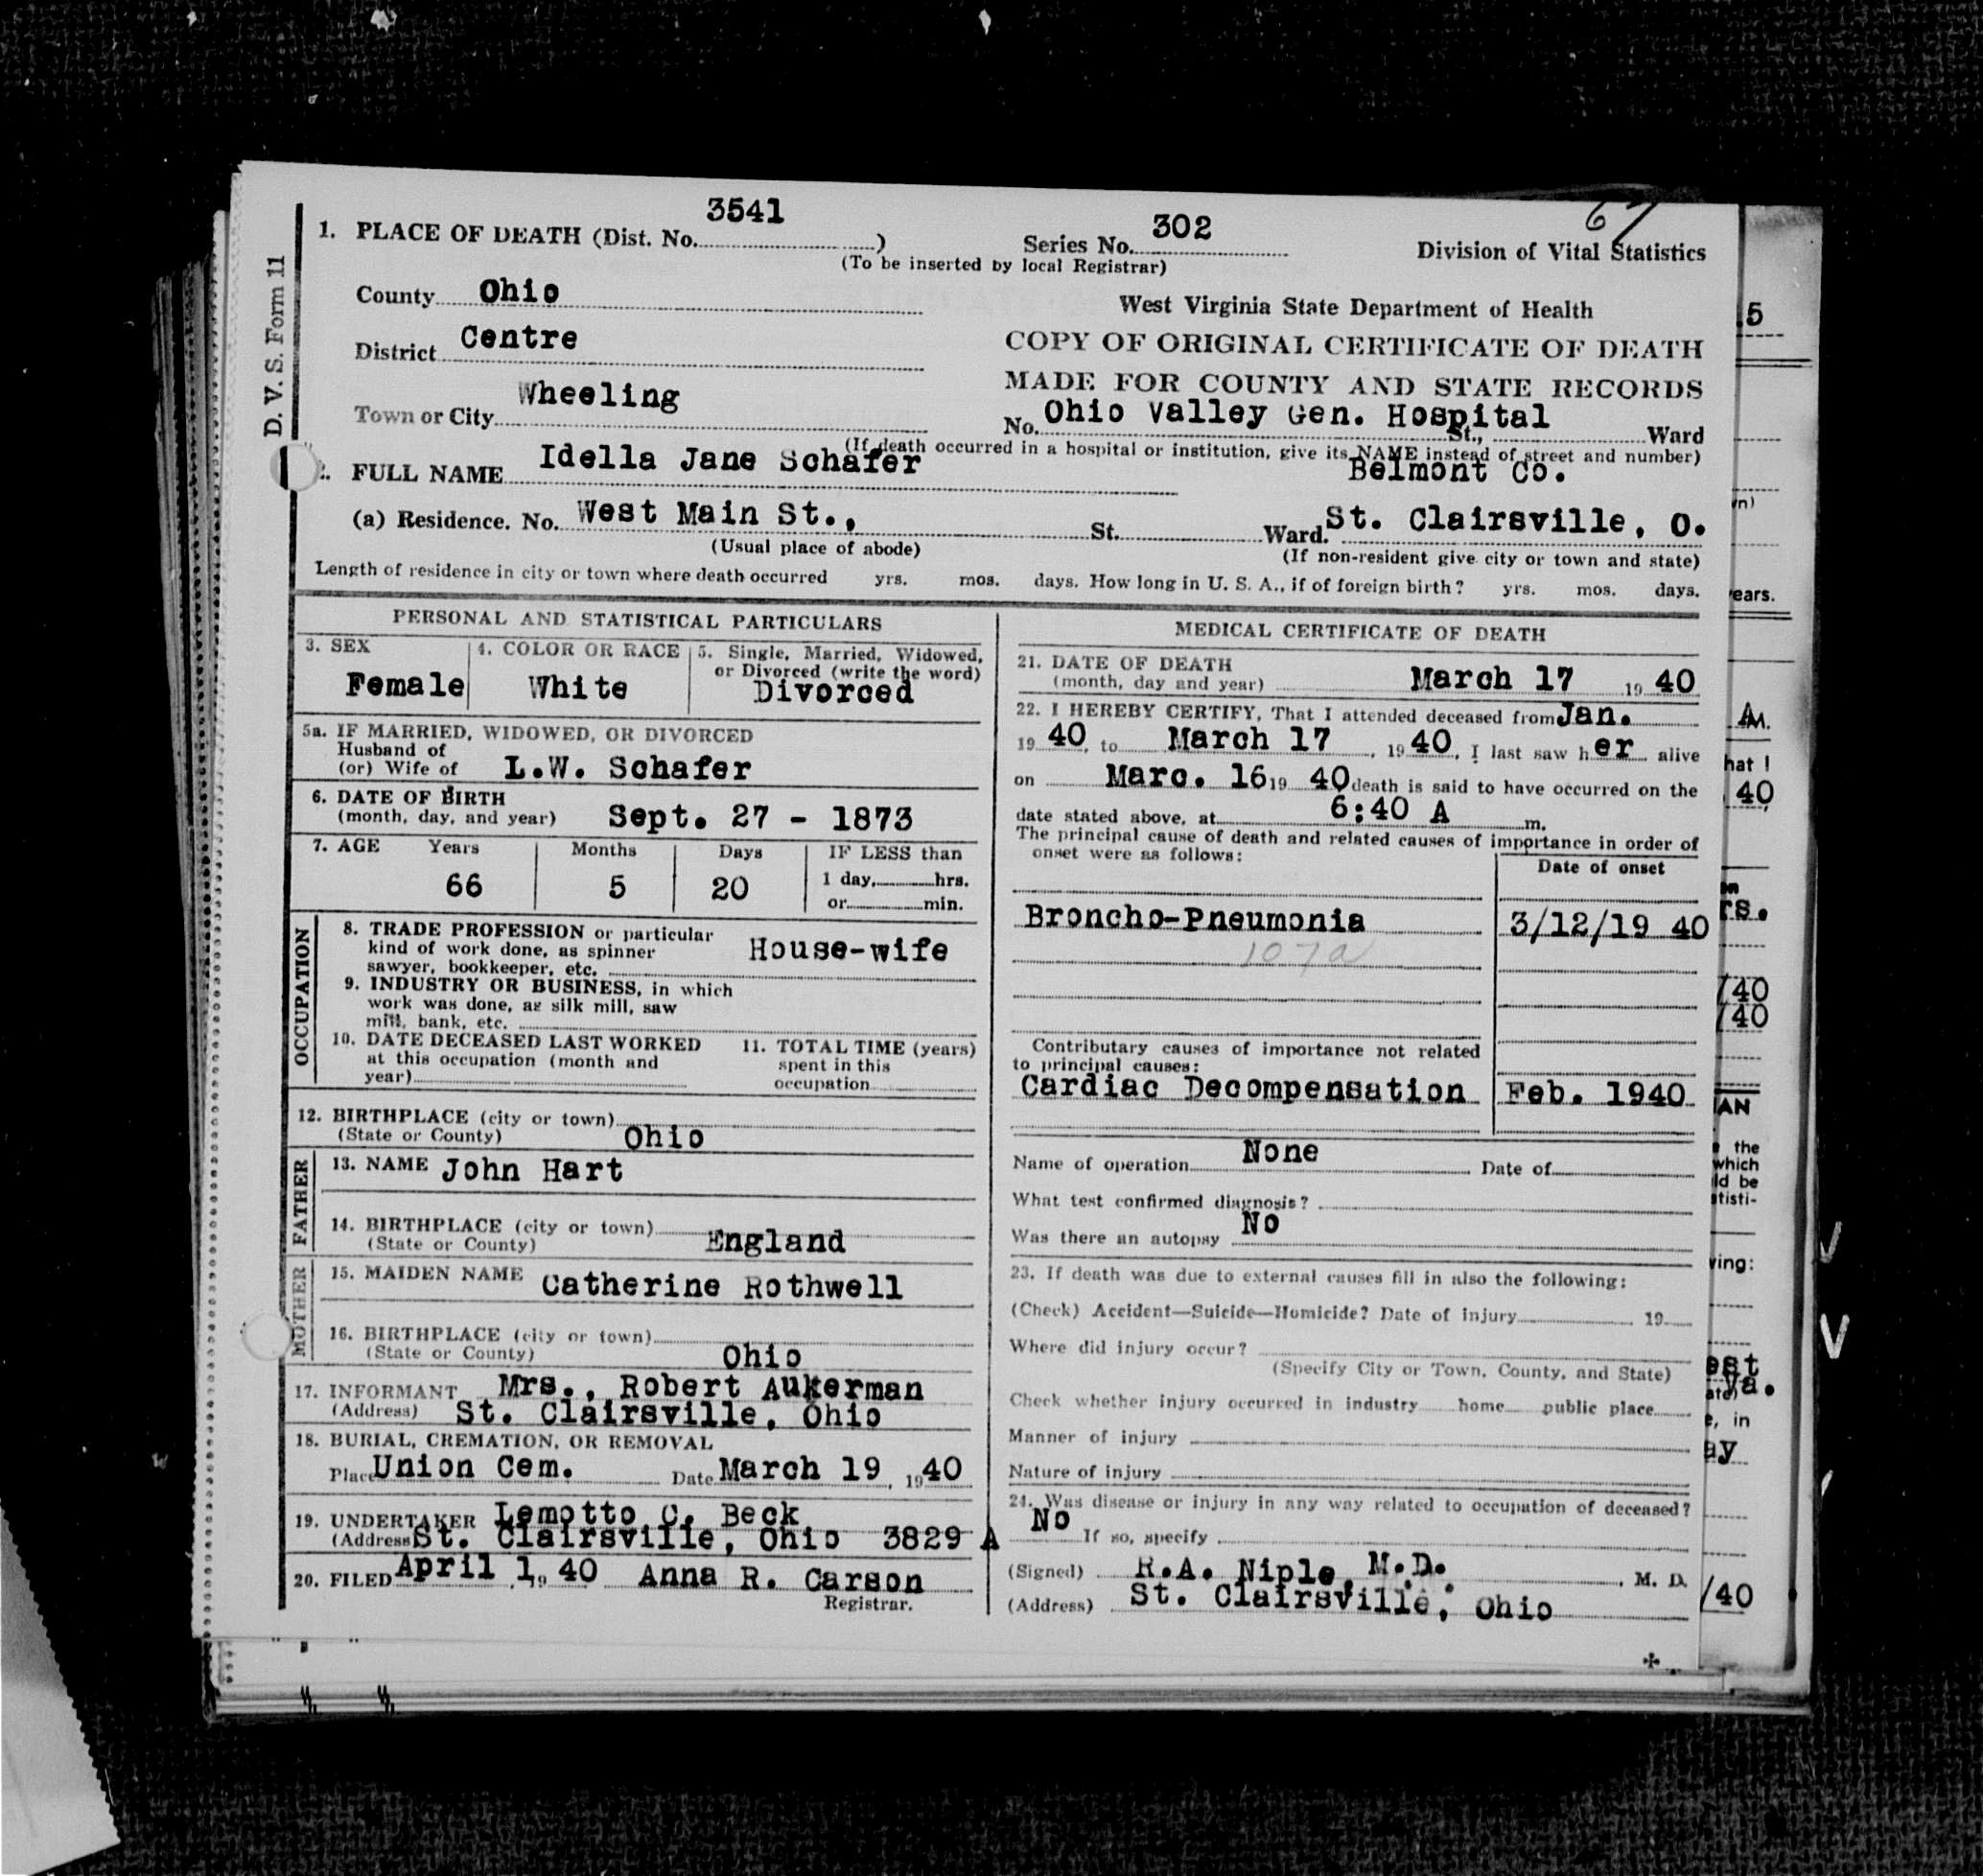 3541
302
67
1. PLACE OF DEATH (Dist. No. )
Series No.
Division of Vital Statistics
(To be inserted by local Registrar)
D. V. S. Form 11
County Ohio
West Virginia State Department of Health
District Centre
COPY OF ORIGINAL CERTIFICATE OF DEATH
MADE FOR COUNTY AND STATE RECORDS
Town or City Wheeling
No. Ohio Valley Gen. Hospital St., Ward
(If death occurred in a hospital or institution, give its NAME instead of street and number)
2. FULL NAME Idella Jane Schafer
Belmont Co.
(a) Residence. No. West Main St., St. Ward. St. Clairsville, O.
(Usual place of abode)
(If non-resident give city or town and state)
Length of residence in city or town where death occurred yrs. mos. days. How long in U. S. A., if of foreign birth? yrs. mos. days.
PERSONAL AND STATISTICAL PARTICULARS
3. SEX
Female
4. COLOR OR RACE
White
5. Single, Married, Widowed,
or Divorced (write the word)
Divorced
5a. IF MARRIED, WIDOWED, OR DIVORCED
Husband of
(or) Wife of L.W. Schafer
6. DATE OF BIRTH
(month, day, and year) Sept. 27 - 1873
7. AGE Years Months Days IF LESS than
66 5 20 1 day, hrs.
or min.
OCCUPATION
8. TRADE PROFESSION or particular
kind of work done, as spinner
sawyer, bookkeeper, etc. House-wife
9. INDUSTRY OR BUSINESS, in which
work was done, as silk mill, saw
mill, bank, etc.
10. DATE DECEASED LAST WORKED
at this occupation (month and
year)
11. TOTAL TIME (years)
spent in this
occupation
12. BIRTHPLACE (city or town)
(State or County) Ohio
FATHER
13. NAME John Hart
14. BIRTHPLACE (city or town)
(State or County) England
MOTHER
15. MAIDEN NAME Catherine Rothwell
16. BIRTHPLACE (city or town)
(State or County) Ohio
17. INFORMANT Mrs., Robert Aukerman
(Address) St. Clairsville, Ohio
18. BURIAL, CREMATION, OR REMOVAL
Place Union Cem. Date March 19, 1940
19. UNDERTAKER Lemotto C. Beck
(Address St. Clairsville, Ohio 3829 A
20. FILED April 1, 19 40 Anna R. Carson
Registrar.
MEDICAL CERTIFICATE OF DEATH
21. DATE OF DEATH
(month, day and year) March 17 19 40
22. I HEREBY CERTIFY, That I attended deceased from Jan.
19 40, to March 17, 19 40, I last saw her alive
on Marc. 16 19 40 death is said to have occurred on the
date stated above, at 6:40 A m.
The principal cause of death and related causes of importance in order of
onset were as follows:
Date of onset
Broncho-Pneumonia 3/12/19 40
107a
Contributory causes of importance not related
to principal causes:
Cardiac Decompensation Feb. 1940
Name of operation None Date of
What test confirmed diagnosis?
Was there an autopsy No
23. If death was due to external causes fill in also the following:
(Check) Accident—Suicide—Homicide? Date of injury 19
Where did injury occur?
(Specify City or Town, County, and State)
Check whether injury occurred in industry home public place
Manner of injury
Nature of injury
24. Was disease or injury in any way related to occupation of deceased?
No If so, specify
(Signed) R.A. Niple, M.D., M. D.
(Address) St. Clairsville, Ohio
5
wn)
ears.
M.
hat I
40
rs.
/40
/40
AN
the
which
ld be
tisti-
ving:
est
Va.
ate)
e, in
ay
/40